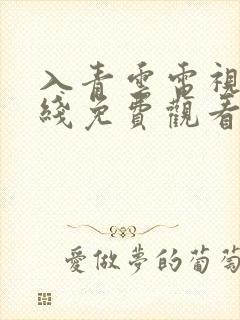 入青雲電視
綫免費觀看
愛做夢的葡萄